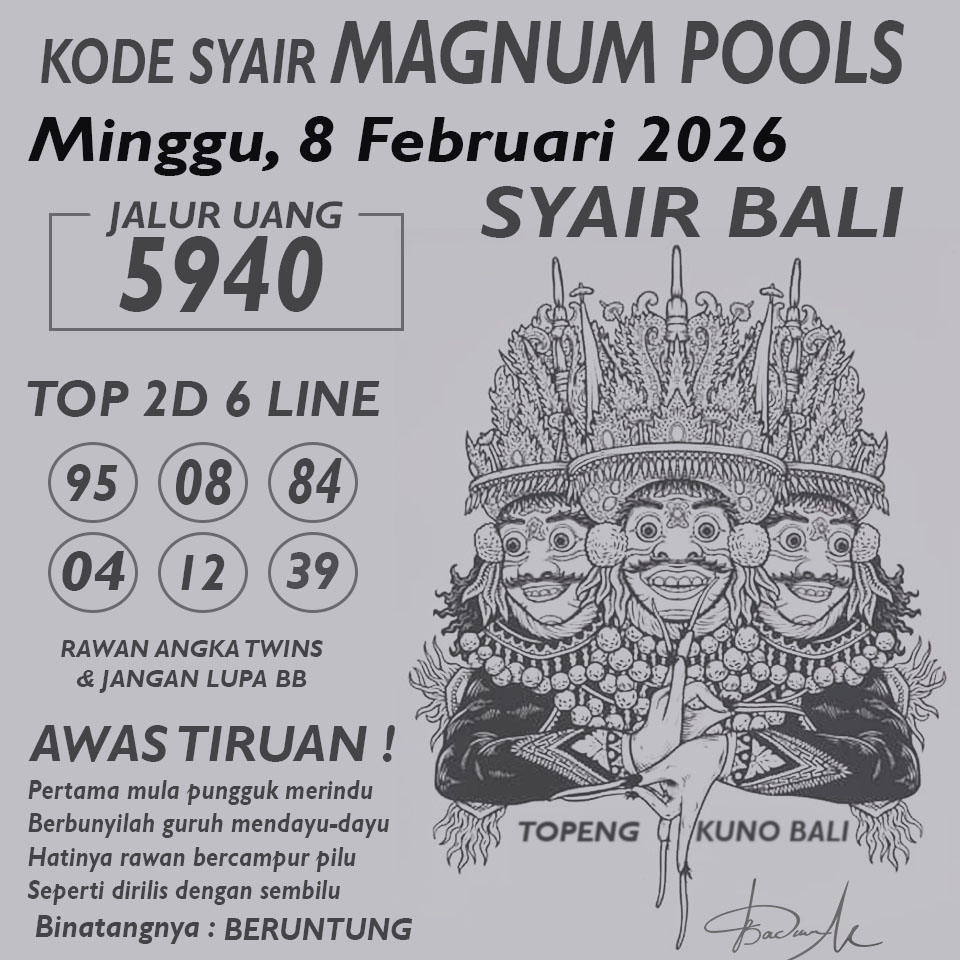 KODE SYAIR MAGNUM POOLS
Minggu, 8 Februari 2026
SYAIR BALI
JALUR UANG
5940
TOP 2D 6 LINE
95 08 84
04 12 39
RAWAN ANGKA TWINS
& JANGAN LUPA BB
AWAS TIRUAN !
Pertama mula pungguk merindu
Berbunyilah guruh mendayu-dayu
Hatinya rawan bercampur pilu
Seperti dirilis dengan sembilu
Binatangnya : BERUNTUNG
TOPENG KUNO BALI